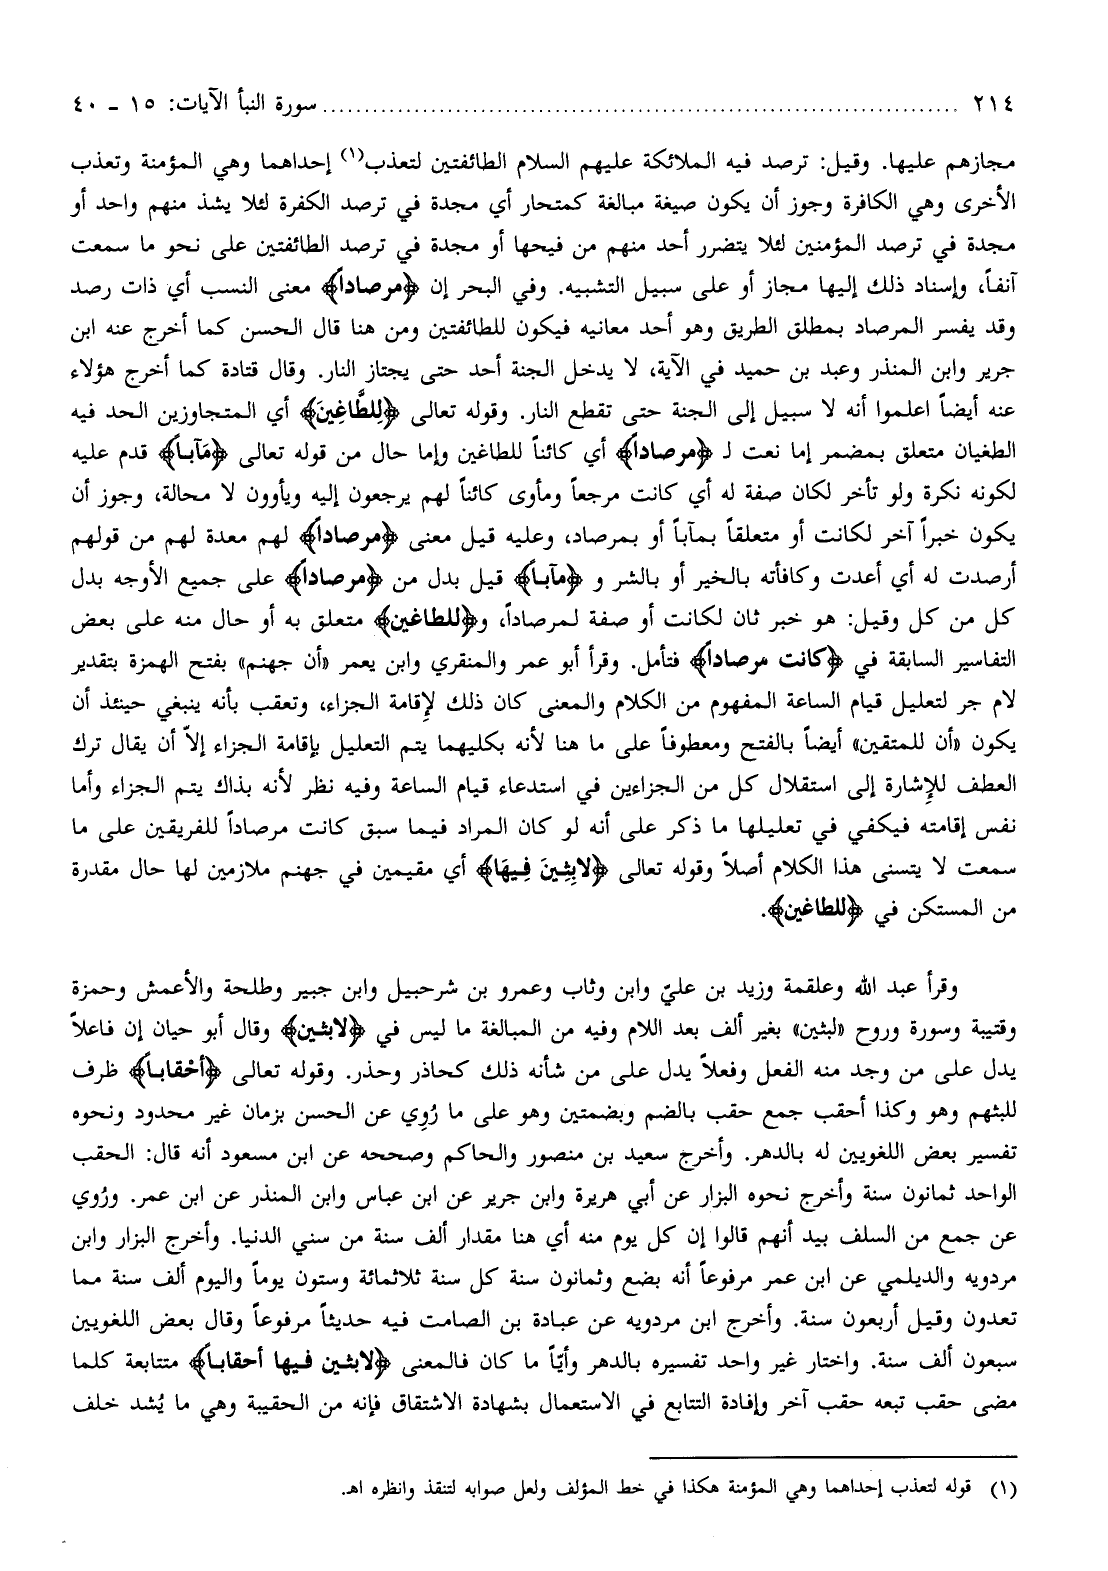 ٢١٤ ........................................................................... سورة النبأ الآيات: ١٥ - ٤٠
مجازهم عليها. وقيل: ترصد فيه الملائكة عليهم السلام الطائفتين لتعذب(١) إحداهما وهي المؤمنة وتعذب
الأخرى وهي الكافرة وجوز أن يكون صيغة مبالغة كمتحار أي مجدة في ترصد الكفرة لئلا يشذ منهم واحد أو
مجدة في ترصد المؤمنين لئلا يتضرر أحد منهم من فيحها أو مجدة في ترصد الطائفتين على نحو ما سمعت
آنفاً، وإسناد ذلك إليها مجاز أو على سبيل التشبيه. وفي البحر إن ﴿مرصاداً﴾ معنى النسب أي ذات رصد
وقد يفسر المرصاد بمطلق الطريق وهو أحد معانيه فيكون للطائفتين ومن هنا قال الحسن كما أخرج عنه ابن
جرير وابن المنذر وعبد بن حميد في الآية، لا يدخل الجنة أحد حتى يجتاز النار. وقال قتادة كما أخرج هؤلاء
عنه أيضاً اعلموا أنه لا سبيل إلى الجنة حتى تقطع النار. وقوله تعالى ﴿لِلطَّاغِينَ﴾ أي المتجاوزين الحد فيه
الطغيان متعلق بمضمر إما نعت لـ ﴿مرصاداً﴾ أي كائناً للطاغين وإما حال من قوله تعالى ﴿مَآباً﴾ قدم عليه
لكونه نكرة ولو تأخر لكان صفة له أي كانت مرجعاً ومأوى كائناً لهم يرجعون إليه ويأوون لا محالة، وجوز أن
يكون خبراً آخر لكانت أو متعلقاً بمآباً أو بمرصاد، وعليه قيل معنى ﴿مرصاداً﴾ لهم معدة لهم من قولهم
أرصدت له أي أعدت وكافأته بالخير أو بالشر و ﴿مآباً﴾ قيل بدل من ﴿مرصاداً﴾ على جميع الأوجه بدل
كل من كل وقيل: هو خبر ثان لكانت أو صفة لمرصاداً، و﴿للطاغين﴾ متعلق به أو حال منه على بعض
التفاسير السابقة في ﴿كانت مرصاداً﴾ فتأمل. وقرأ أبو عمر والمنقري وابن يعمر «أن جهنم» بفتح الهمزة بتقدير
لام جر لتعليل قيام الساعة المفهوم من الكلام والمعنى كان ذلك لإقامة الجزاء، وتعقب بأنه ينبغي حينئذ أن
يكون «أن للمتقين» أيضاً بالفتح ومعطوفاً على ما هنا لأنه بكليهما يتم التعليل بإقامة الجزاء إلاّ أن يقال ترك
العطف للإشارة إلى استقلال كل من الجزاءين في استدعاء قيام الساعة وفيه نظر لأنه بذاك يتم الجزاء وأما
نفس إقامته فيكفي في تعليلها ما ذكر على أنه لو كان المراد فيما سبق كانت مرصاداً للفريقين على ما
سمعت لا يتسنى هذا الكلام أصلاً وقوله تعالى ﴿لابِثِينَ فِيهَا﴾ أي مقيمين في جهنم ملازمين لها حال مقدرة
من المستكن في ﴿للطاغين﴾.
وقرأ عبد الله وعلقمة وزيد بن عليّ وابن وثاب وعمرو بن شرحبيل وابن جبير وطلحة والأعمش وحمزة
وقتيبة وسورة وروح «لبثين» بغير ألف بعد اللام وفيه من المبالغة ما ليس في ﴿لابثين﴾ وقال أبو حيان إن فاعلاً
يدل على من وجد منه الفعل وفعلاً يدل على من شأنه ذلك كحاذر وحذر. وقوله تعالى ﴿أحْقاباً﴾ ظرف
للبثهم وهو وكذا أحقب جمع حقب بالضم وبضمتين وهو على ما رُوِي عن الحسن بزمان غير محدود ونحوه
تفسير بعض اللغويين له بالدهر. وأخرج سعيد بن منصور والحاكم وصححه عن ابن مسعود أنه قال: الحقب
الواحد ثمانون سنة وأخرج نحوه البزار عن أبي هريرة وابن جرير عن ابن عباس وابن المنذر عن ابن عمر. ورُوي
عن جمع من السلف بيد أنهم قالوا إن كل يوم منه أي هنا مقدار ألف سنة من سني الدنيا. وأخرج البزار وابن
مردويه والديلمي عن ابن عمر مرفوعاً أنه بضع وثمانون سنة كل سنة ثلاثمائة وستون يوماً واليوم ألف سنة مما
تعدون وقيل أربعون سنة. وأخرج ابن مردويه عن عبادة بن الصامت فيه حديثاً مرفوعاً وقال بعض اللغويين
سبعون ألف سنة. واختار غير واحد تفسيره بالدهر وأيّاً ما كان فالمعنى ﴿لابثين فيها أحقاباً﴾ متتابعة كلما
مضى حقب تبعه حقب آخر وإفادة التتابع في الاستعمال بشهادة الاشتقاق فإنه من الحقيبة وهي ما يُشد خلف
(١) قوله لتعذب إحداهما وهي المؤمنة هكذا في خط المؤلف ولعل صوابه لتنقذ وانظره اهـ.